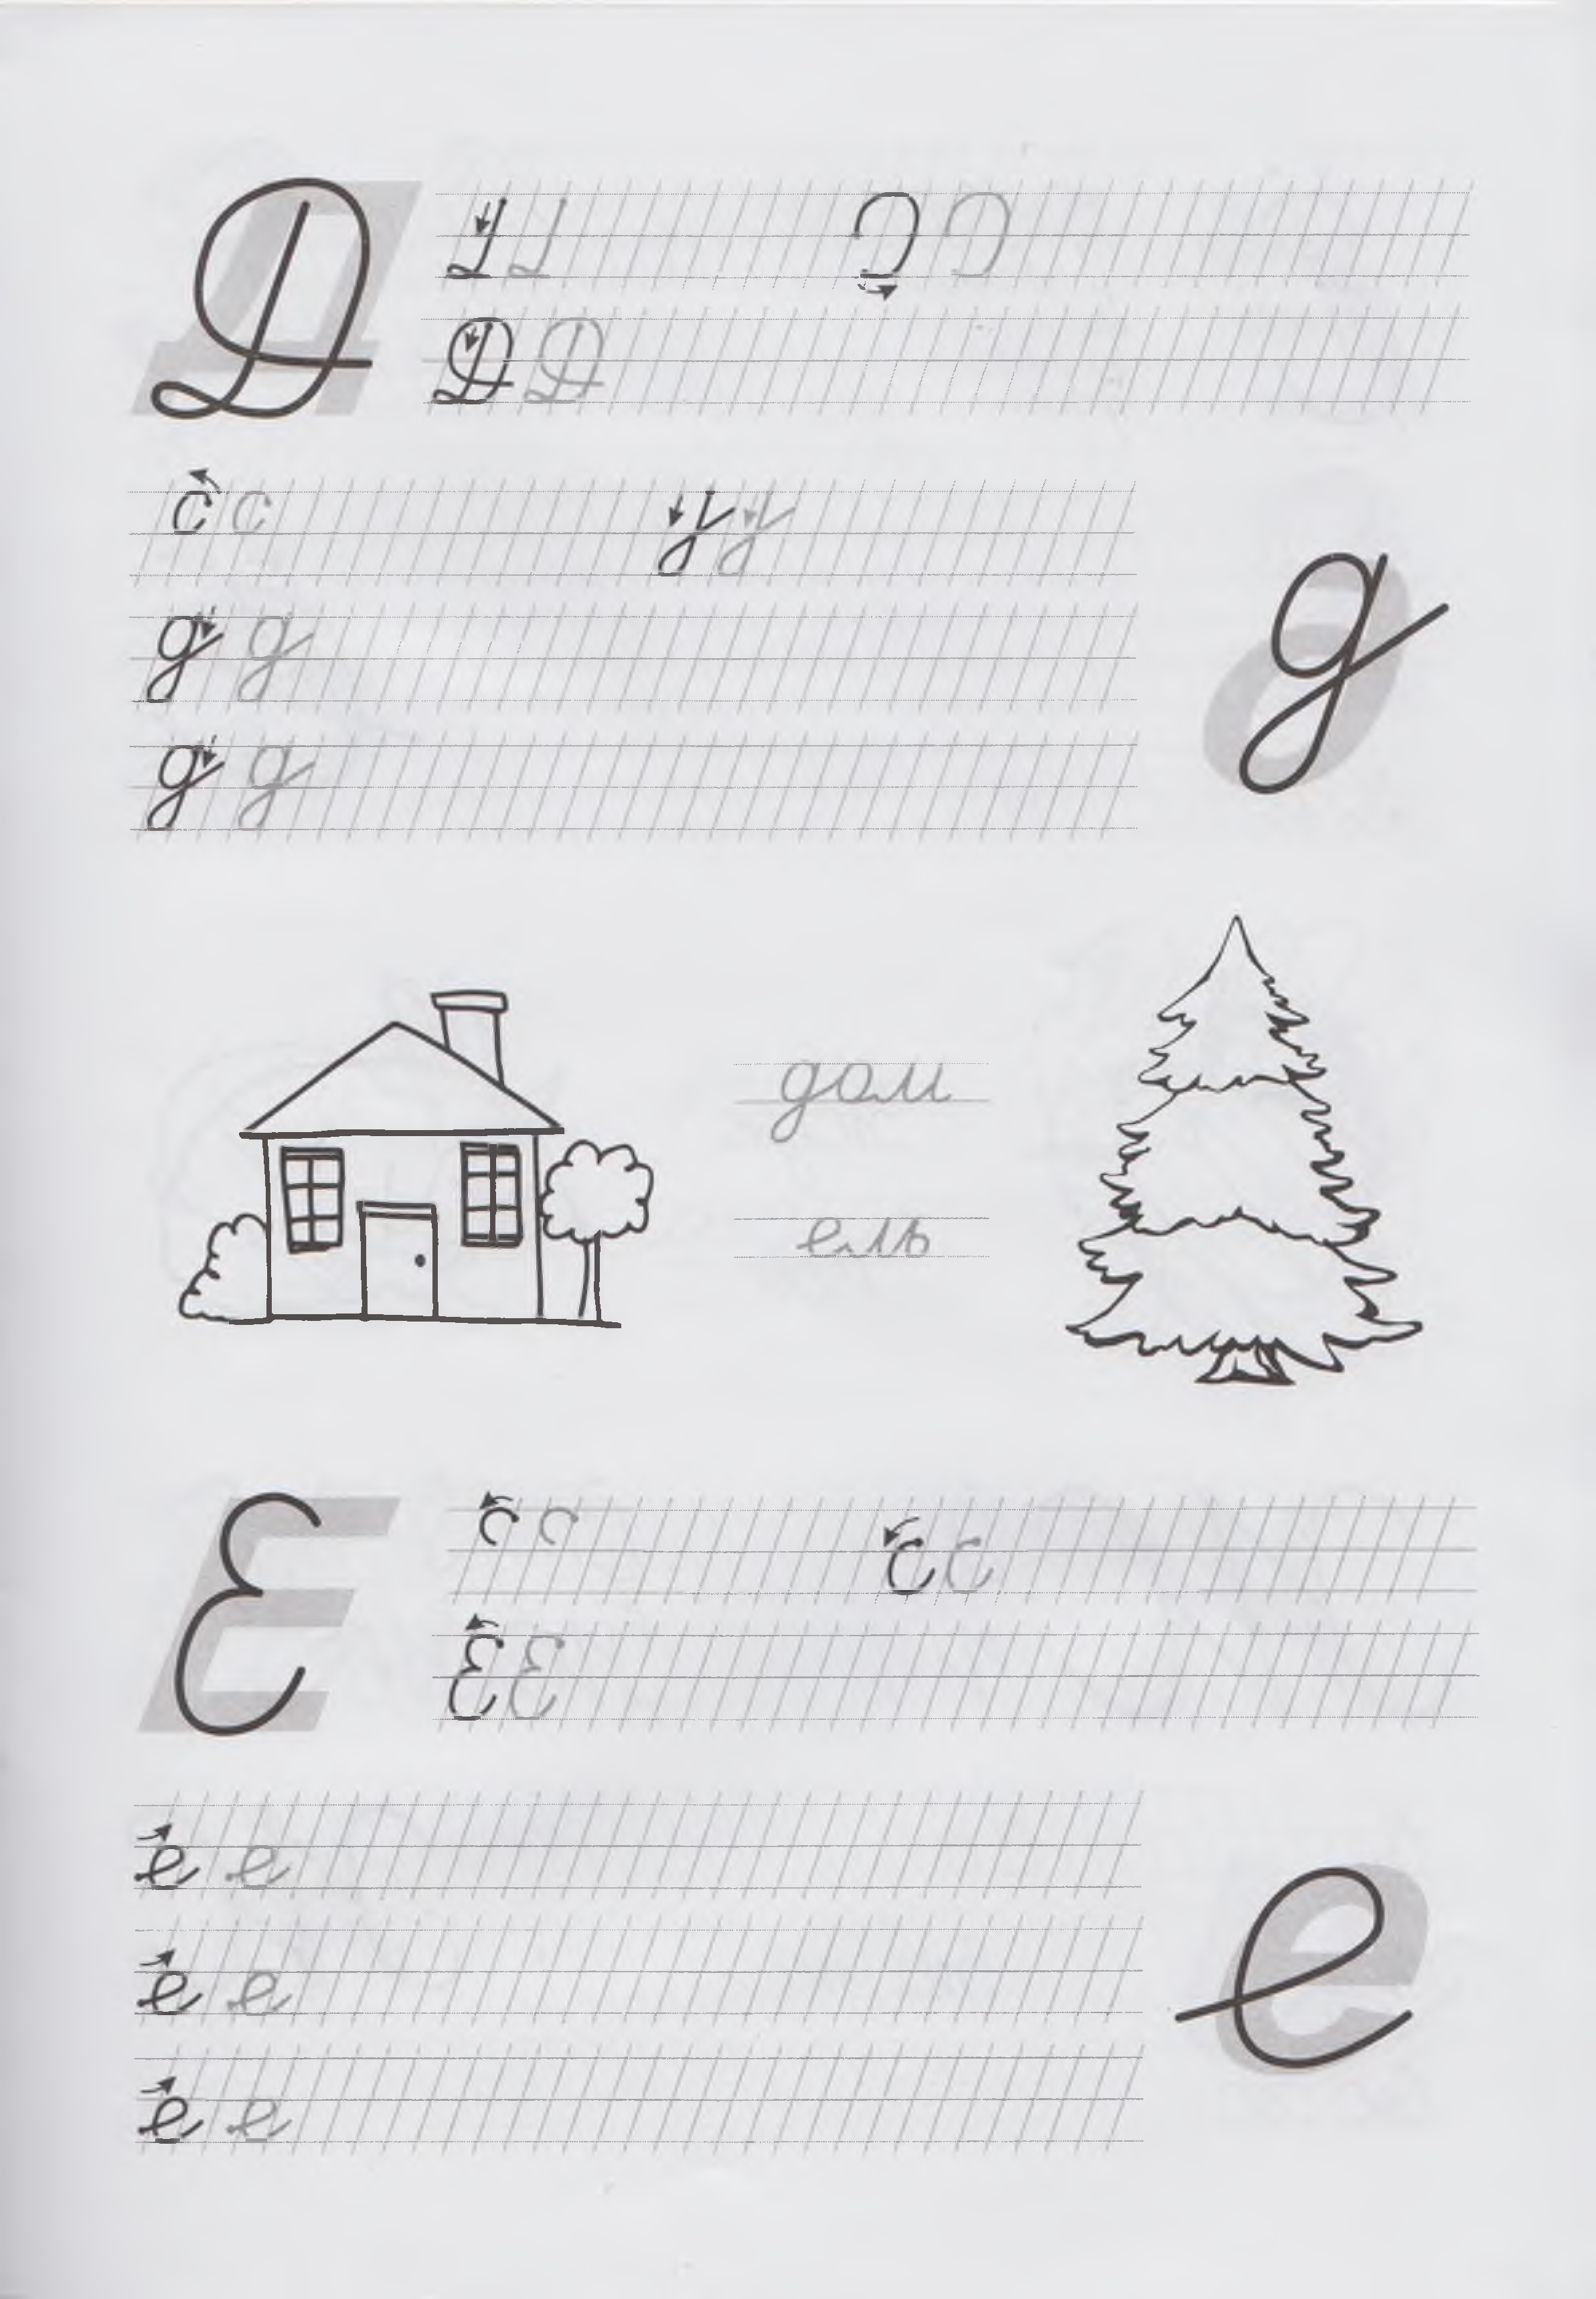 Д
Д Д
д
д д
д д
дом
ель
Е
Е Е
е
е е
е е
е е